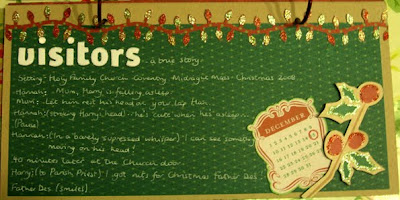 visitors - a true story.
Setting: Holy Family Church Coventry Midnight Mass Christmas
Hannah: Mum, Harry is falling asleep
Mum: Let him rest his head on your lap then
Hannah: (stroking Harry's head) He's cute when he's asleep...
(Pause)
Hannah: (In a barely supressed whisper) I can see something
moving on his head!
40 minutes later at the Church door.
Harry: (to Parish Priest) I got nits for Christmas Father Des!
Father Des: (smiles)
DECEMBER